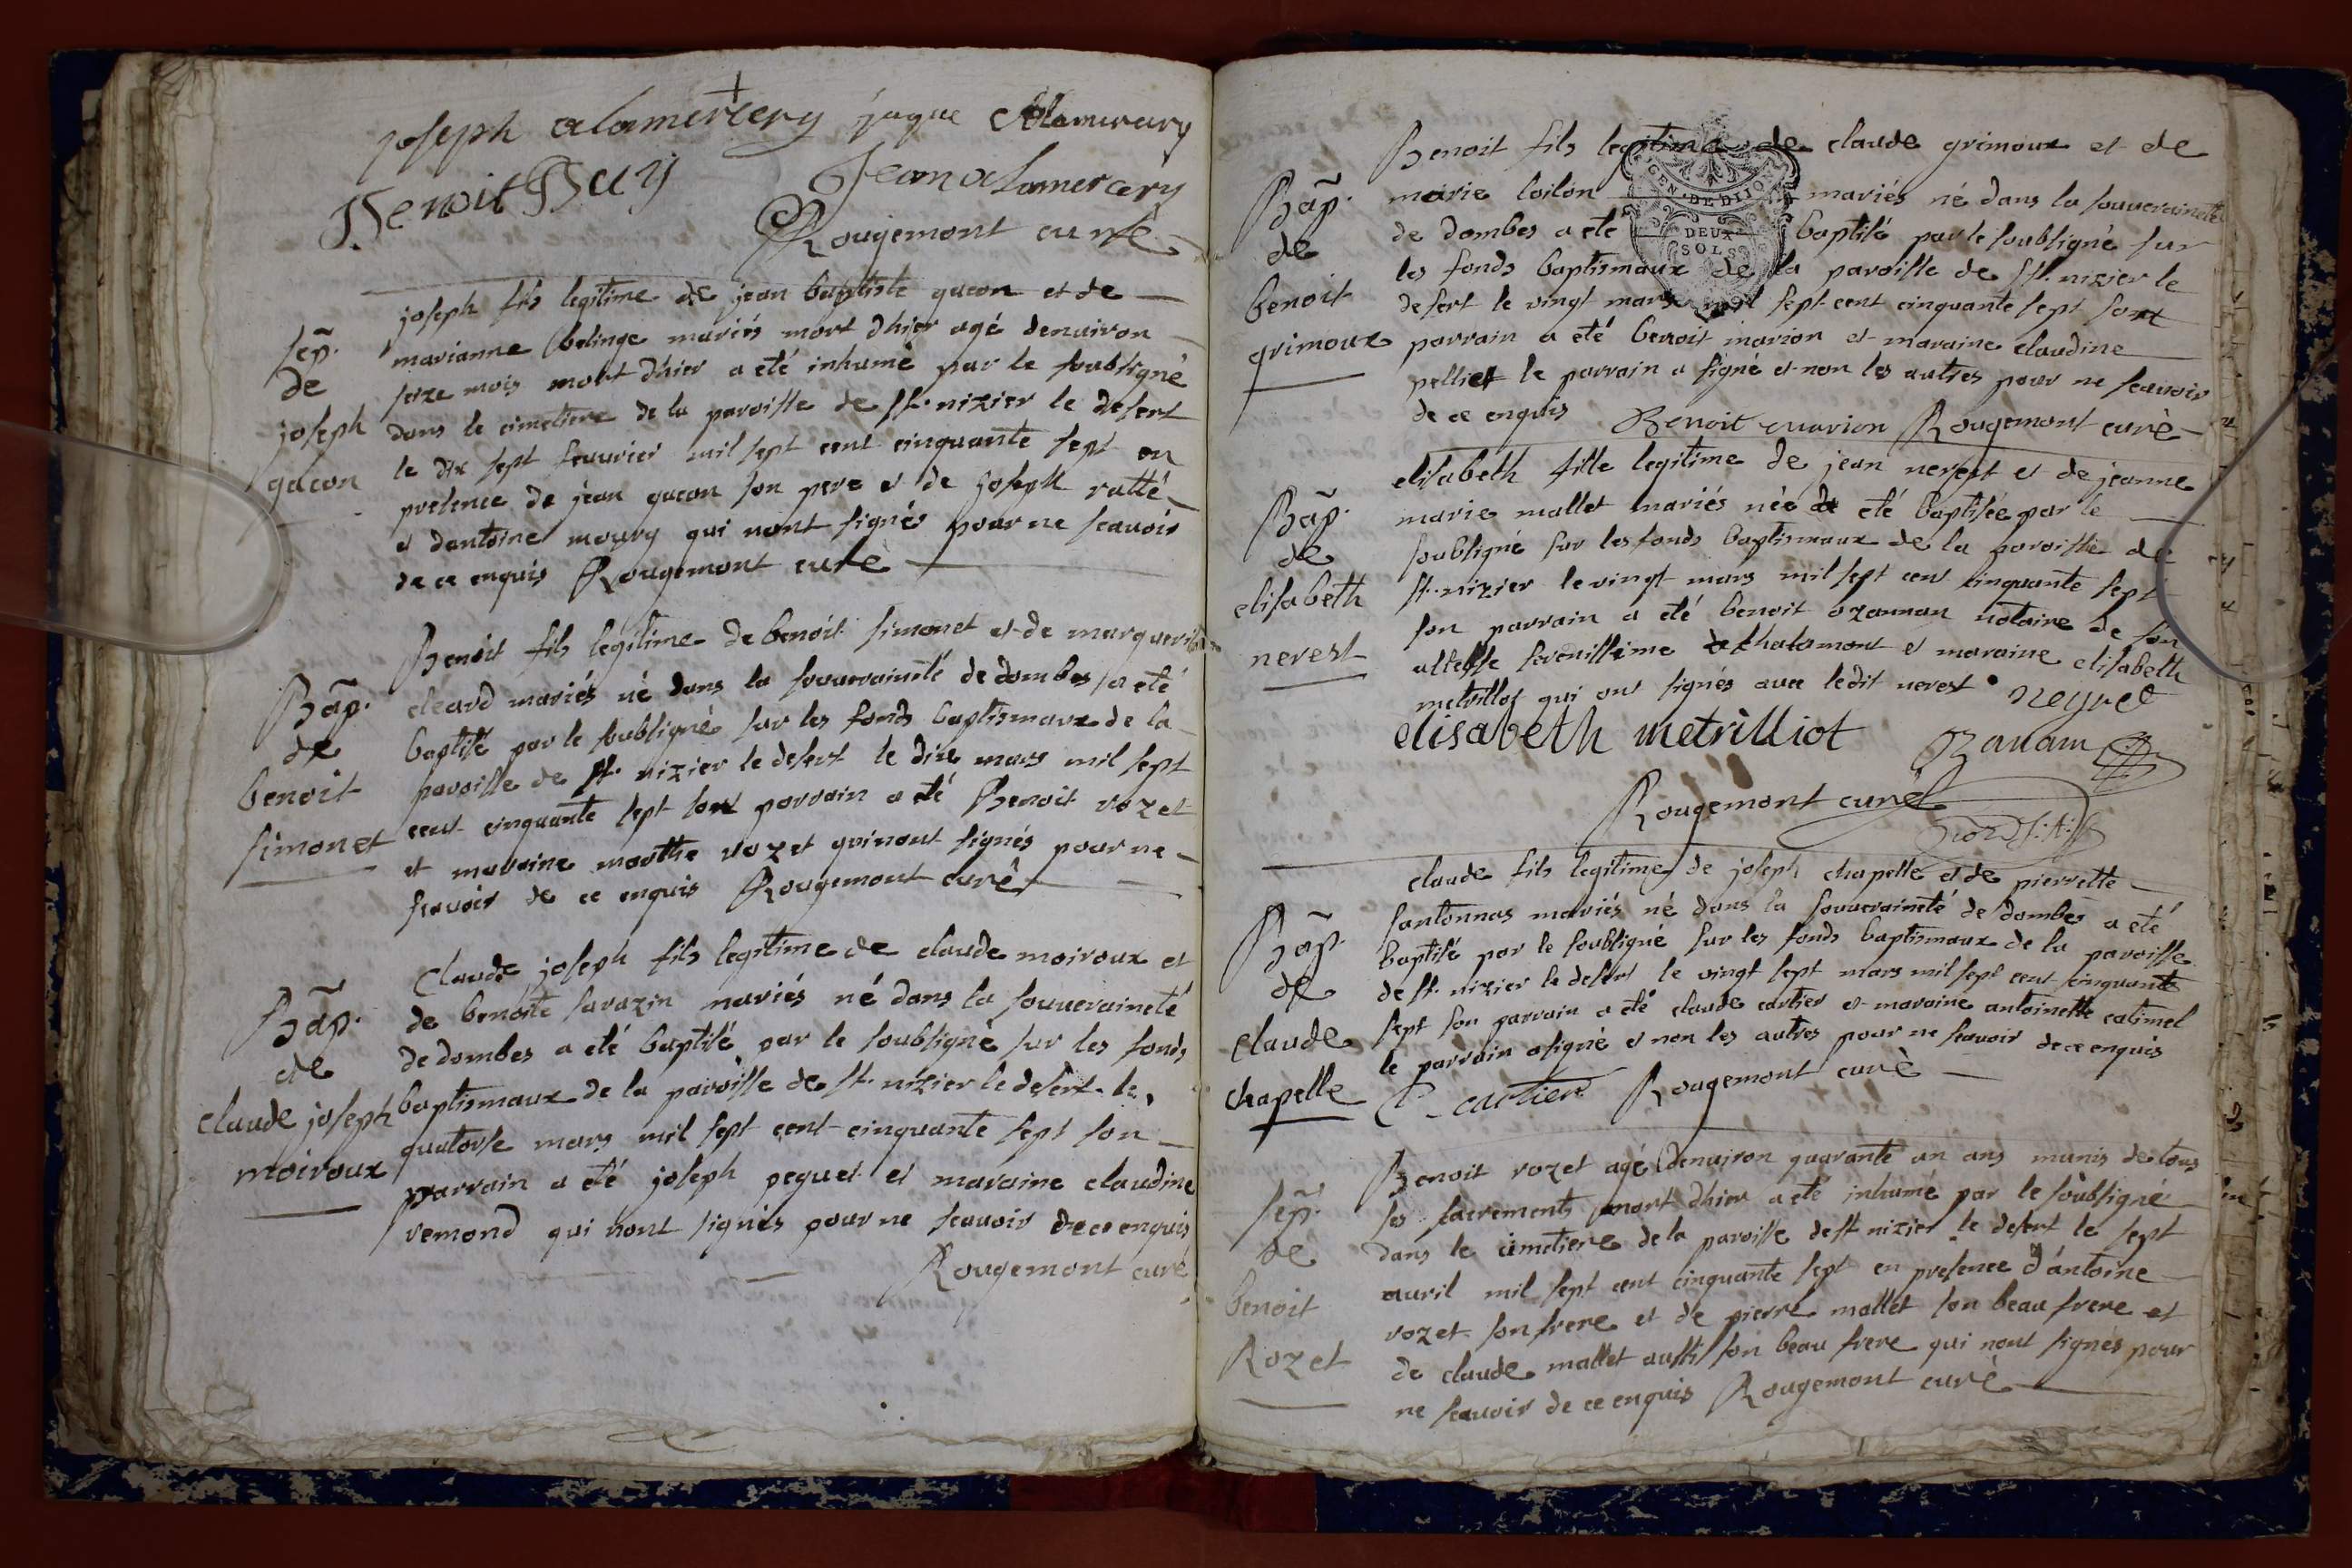 joseph alamercery jaque Alamercery
Benoit Buy
Jean alamercery
Rougemont curé
sep. de joseph gacon
joseph fils legitime de jean baptiste gacon et de
marianne belinge mariés mort dhier agé denuiron
seize mois mort dhier a eté inhumé par le soubsigné
dans le cimetiere de la paroisse de st. nizier le desert
le dix sept feuurier mil sept cent cinquante sept en
presence de jean gacon son pere et de joseph ratté
et dantoine moury qui nont signés pour ne scauoir
de ce enquis Rougemont curé
Bap. de benoit simonet
Benoit fils legitime de benoit simonet et de marguerite
cleard mariés né dans la souuraineté de dombes a eté
baptisé par le soubsigné sur les fonds baptismaux de la
paroisse de st. nizier le desert le dix mars mil sept
cent cinquante sept son parrain a eté Benoit rozet
et maraine marthe rozet qui nont signés pour ne
scauoir de ce enquis Rougemont curé
Bap. de claude joseph moiroux
Claude joseph fils legitime de claude moiroux et
de benoite sarazin mariés né dans la souueraineté
de dombes a eté baptisé par le soubsigné sur les fonds
baptismaux de la paroisse de st. nizier le desert le
quatorse mars mil sept cent cinquante sept son
parrain a eté joseph peguet et maraine claudine
remond qui nont signés pour ne scauoir de ce enquis
Rougemont curé
GEN. DE DIJON
DEUX
SOLS
Bap. de benoit grimoux
Benoit fils legitime de claude grimoux et de
marie loilon mariés né dans la souueraineté
de dombes a eté baptisé par le soubsigné sur
les fonds baptismaux de la paroisse de st. nizier le
desert le vingt mars mil sept cent cinquante sept son
parrain a eté benoit marion et maraine claudine
pelliet le parrain a signé et non les autres pour ne scauoir
de ce enquis Benoit marion Rougemont curé
Bap. de elisabeth nerest
elisabeth fille legitime de jean nerest et de jeanne
marie mallet mariés née eté baptisée par le
soubsigné sur les fonds baptismaux de la paroisse de
st. nizier le vingt mars mil sept cent cinquante sept
son parrain a eté benoit ozannan notaire de son
altesse serenissime de chatamont et maraine elisabeth
metrillot qui ont signés auec ledit nerest neyret
elisabeth metrilliot Ozanam
Rougemont curé
Bap. de claude chapelle
claude fils legitime de joseph chapelle et de pierrette
santonnas mariés né dans la souueraineté de dombes a eté
baptisé par le soubsigné sur les fonds baptismaux de la paroisse
de st. nizier le desert le vingt sept mars mil sept cent cinquante
sept son parrain a eté claude cartier et maraine antoinette catimel
le parrain a signé et non les autres pour ne scauoir de ce enquis
C. cartier Rougemont curé
sep. de benoit Rozet
Benoit rozet agé denuiron quarante un ans munis de tous
ses sacrements mort dhier a eté inhumé par le soubsigné
dans le cimetiere de la paroisse de st nizier le desert le sept
auril mil sept cent cinquante sept en presence d'antoine
rozet son frere et de pierre mallet son beau frere et
de claude mallet aussi son beau frere qui nont signés pour
ne scauoir de ce enquis Rougemont curé